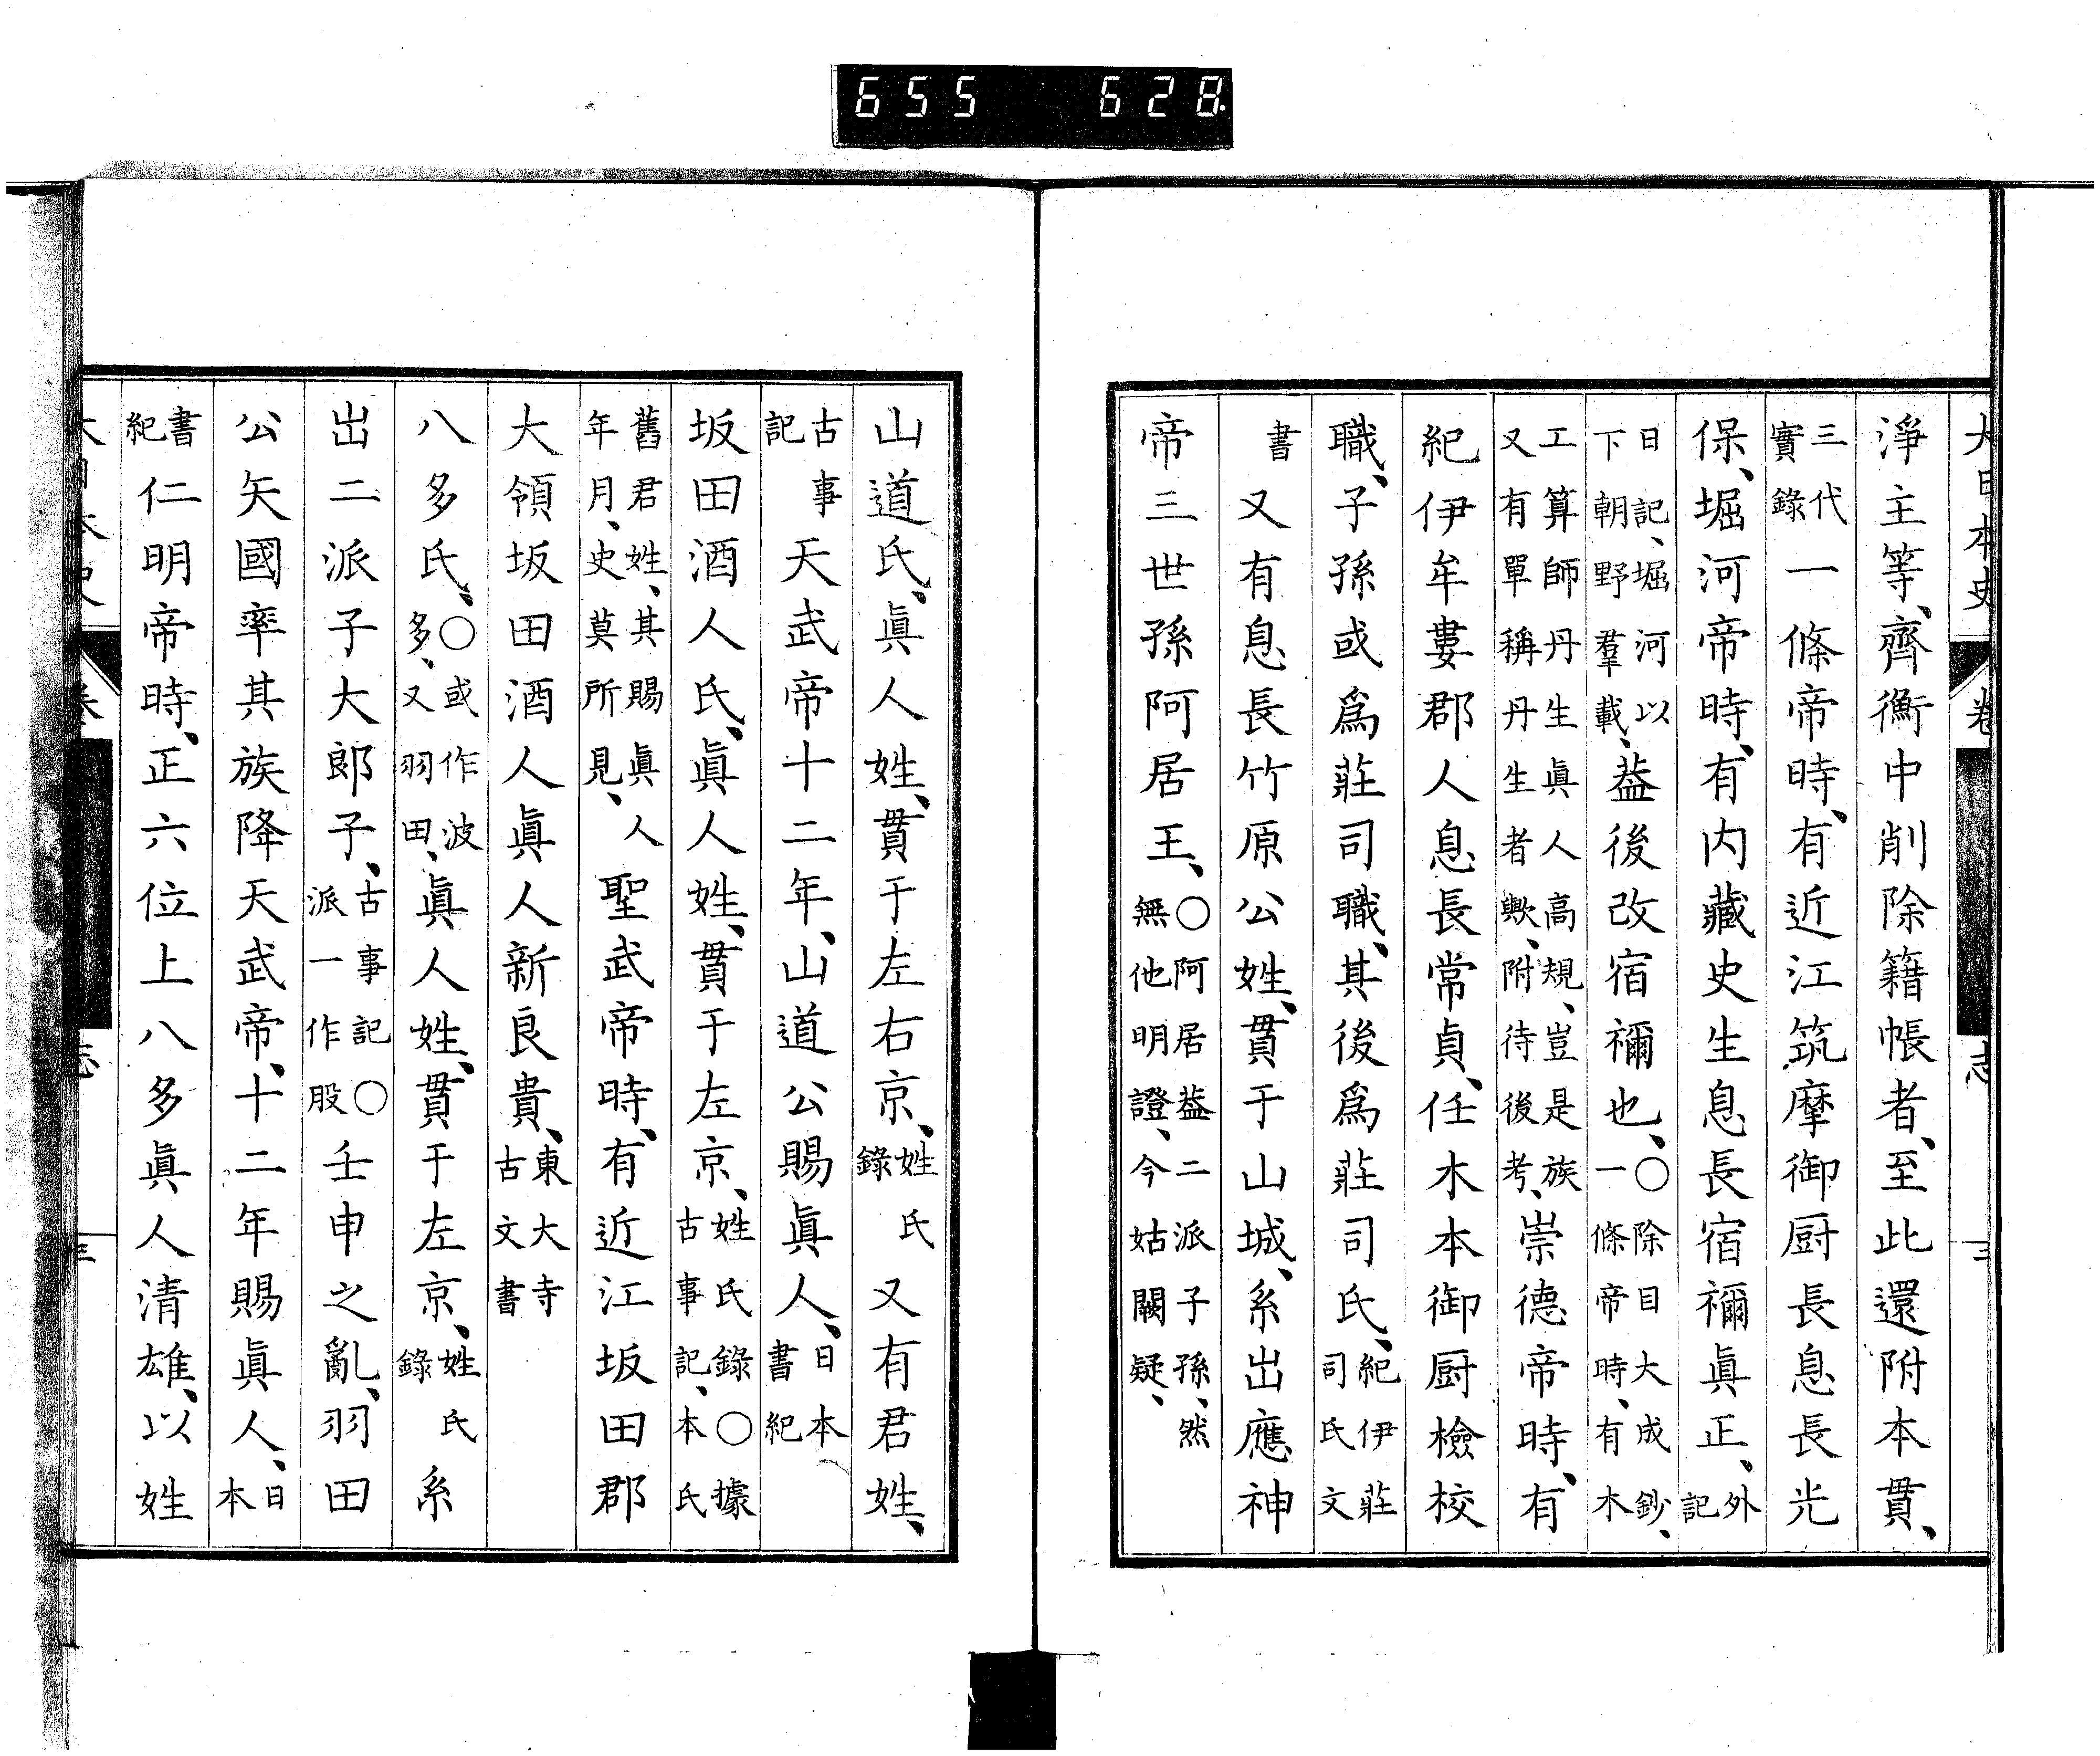 655 628
大日本史 卷 志 三
淨主等、齊衡中削除籍帳者、至此還附本貫、
三代實錄一條帝時、有近江筑摩御厨長息長光
保、堀河帝時、有内藏史生息長宿禰眞正、外記
日記、堀河以下朝野羣載、葢後改宿禰也、○除目大成鈔、一條帝時、有木
工算師丹生眞人高規、豈是族又有單稱丹生者歟、附待後考、崇德帝時、有
紀伊牟婁郡人息長常貞、任木本御厨檢校
職、子孫或爲莊司職、其後爲莊司氏、紀伊莊司氏文
書又有息長竹原公姓、貫于山城、系出應神
帝三世孫阿居王、○阿居葢二派子孫、然無他明證、今姑闕疑、
山道氏、眞人姓、貫于左右京、姓氏錄又有君姓、
古事記天武帝十二年、山道公賜眞人、日本書紀
坂田酒人氏、眞人姓、貫于左京、姓氏錄○據古事記、本氏
舊君姓、其賜眞人年月、史莫所見、聖武帝時、有近江坂田郡
大領坂田酒人眞人新良貴、東大寺古文書
八多氏、○或作波多、又羽田、眞人姓、貫于左京、姓氏錄系
出二派子大郎子、古事記○派一作股壬申之亂、羽田
公矢國率其族降天武帝、十二年賜眞人、日本
書紀仁明帝時、正六位上八多眞人清雄、以姓
大日本史 卷 志 三